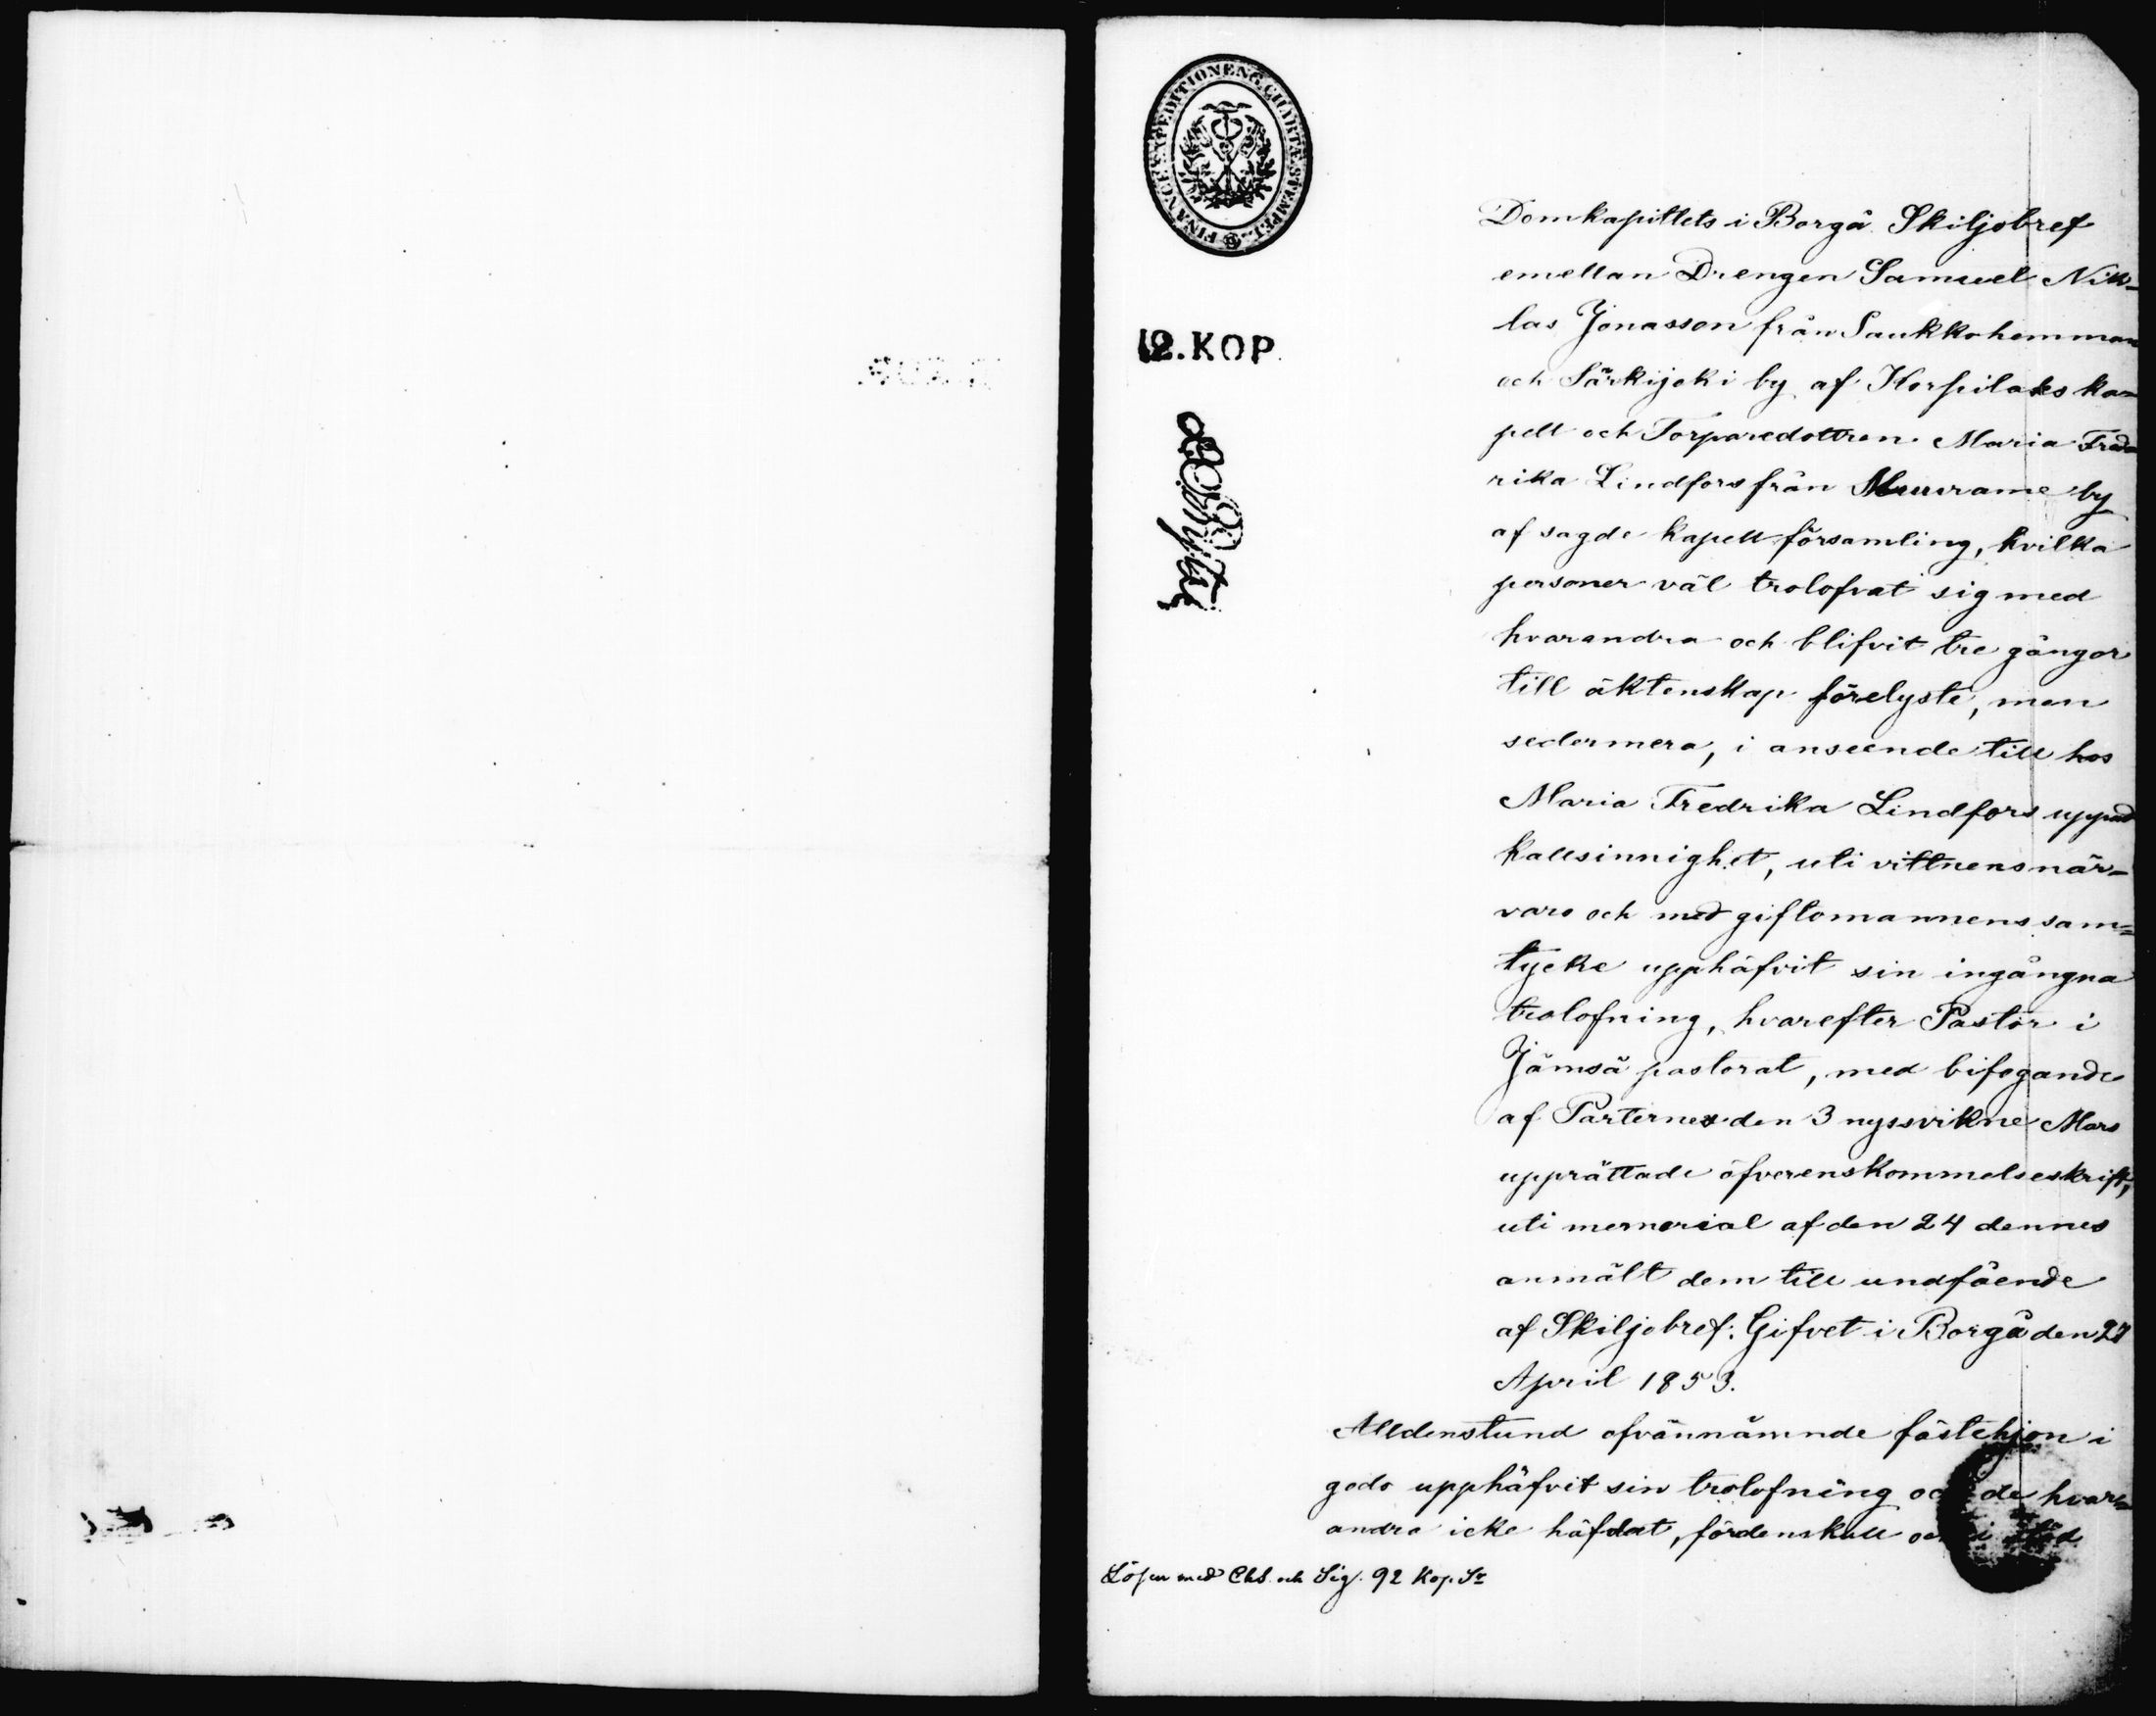 FINANCE EXPEDITIONENS CHARTÆ STEMPEL
12. KOP.
Domkapitlets i Borgå Skiljobref
emellan Drengen Samuel Nik-
las Jonasson från Saukko hemman
och Särkijoki by af Korpilaks ka-
pell och Torparedottren Maria Fred-
rika Lindfors från Muurame by
af sagde kapellförsamling, hvilka
personer väl trolofvat sig med
hvarandra och blifvit tre gångor
till äktenskap förelyste, men
sedermera, i anseende till hos
Maria Fredrika Lindfors uppstådd
kallsinnighet, uti vittnens när-
varo och med giftomannens sam-
tycke upphäfvit sin ingångna
trolofning, hvarefter Pastor i
Jämsä pastorat, med bifogande
af Parternes den 3 nyssvikne Mars
upprättade öfverenskommelseskrift,
uti memorial af den 24 dennes
anmält dem till undfående
af Skiljobref; Gifvet i Borgå den 27
April 1853.
Alldenstund ofvannämnde fästehjon i
godo upphäfvit sin trolofning och de hvar-
andra icke häfdat, fördenskull och i stöd
Lösen med Chs. och Sig. 92 Kop. Sr